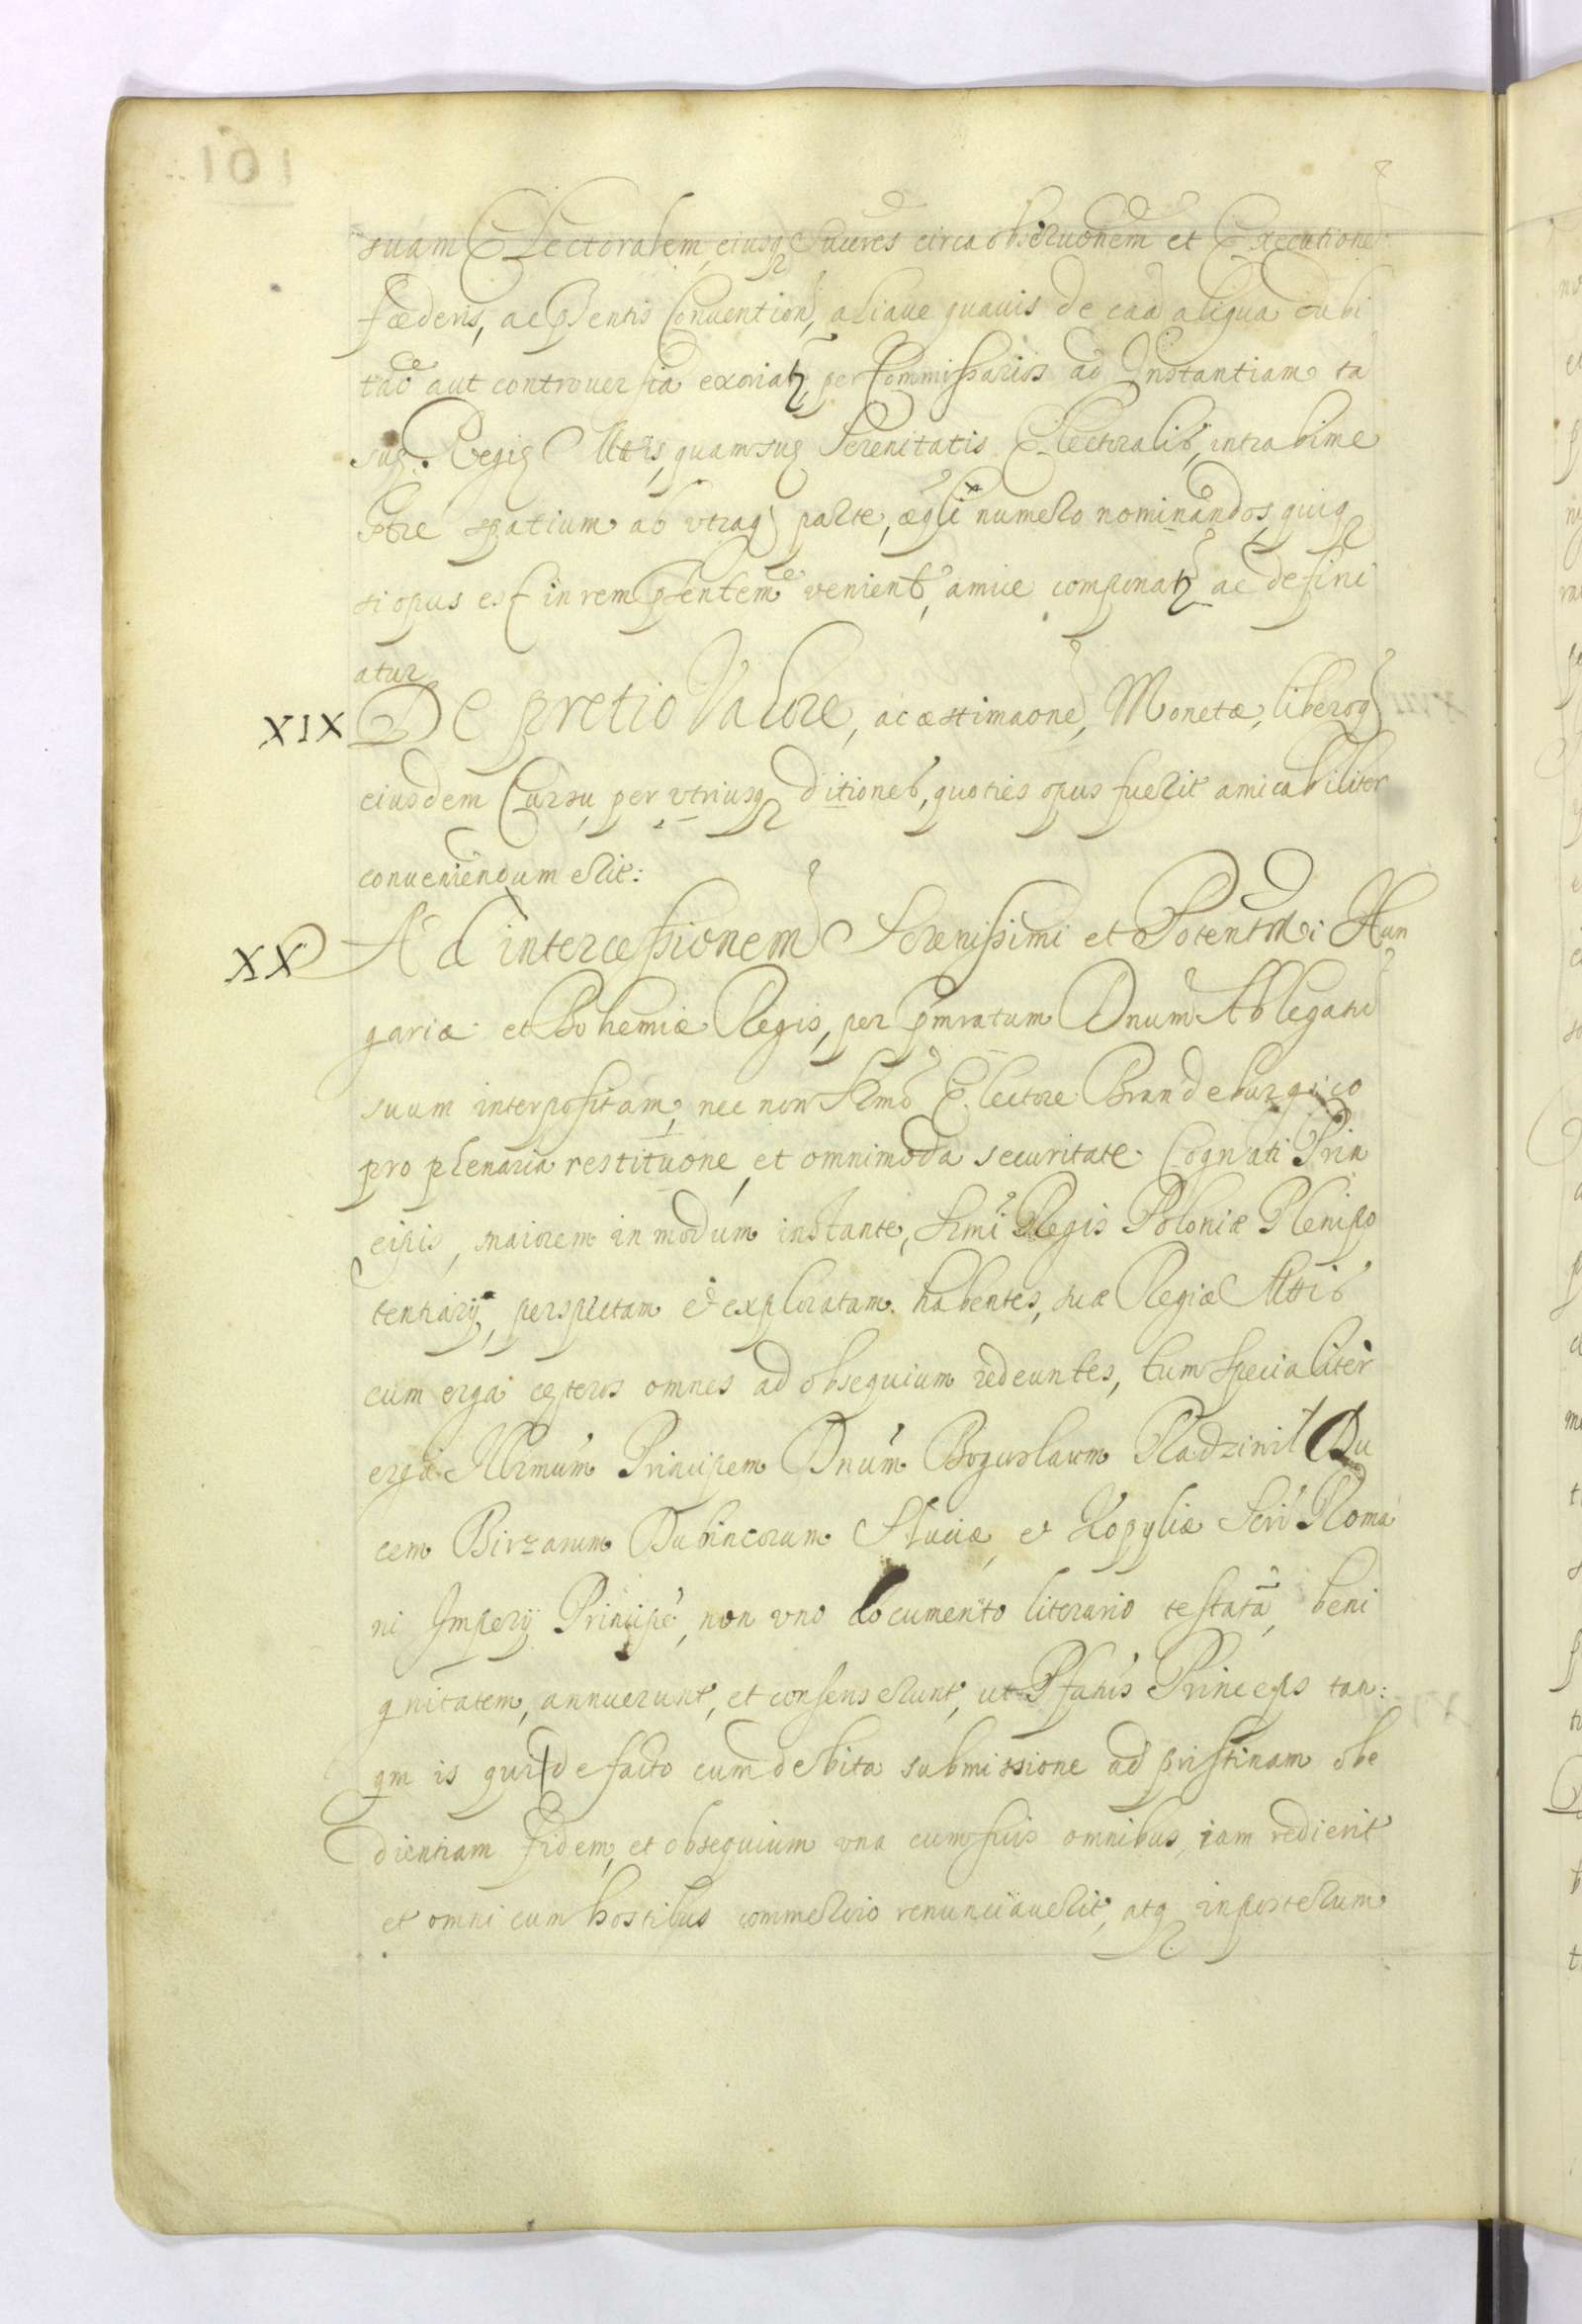 101
suam Electoralem, eiusq Succres circa obseruonem et Executione
fœderis, ac Psentis Conuention, aliaue quauis de caa aliqua dubi
taoe aut controuersia exoriatz, per Commissarios ad Instantiam ta
suę Regię Mttis, quam suę Serenitatis Electoralis, intra bime
stre spatium ab vtraq parte, æqli numero nominandos, quiq
si opus est in rem Psentem venient, amice componatz ac defini
atur
XIX De pretio Valore, ac æstimaone, Monetæ, liberoq
eiusdem Cursu, per vtriusq ditiones, quoties opus fuerit amicabiliter
conueniendum erit:
XX Ad intercessionem Serenissimi et Potentmi Hun
gariæ et Bohemiæ Regis, per pmratum Dnum Ablegatu
suum interpositam, nec non Srmo Electore Brandeburgico
pro plenaria restituone, et omnimoda securitate Cognati Prin
cipis, maiorem in modum instante, Srmi Regis Poloniæ Plenipo
tentiarij, perspectam et exploratam habentes, suæ Regiæ Mttis
cum erga cęteros omnes ad obsequium redeuntes, tum specialiter
erga Illrmum Principem Dnum Boguslaum Radziuil Du
cem Birzarum Dubincorum Sluciæ, et Kopyliæ Scri Roma
ni Imperij Principe, non vno documento literario testata, beni
gnitatem, annuerunt, et consenserunt, ut Pfatus Princeps tan:
qm is qui de facto cum debita submissione ad pristinam obe
dientiam fidem, et obsequium vna cum suis omnibus, iam redierit
et omni cum hostibus commercio renunciauerit, atq inposterum